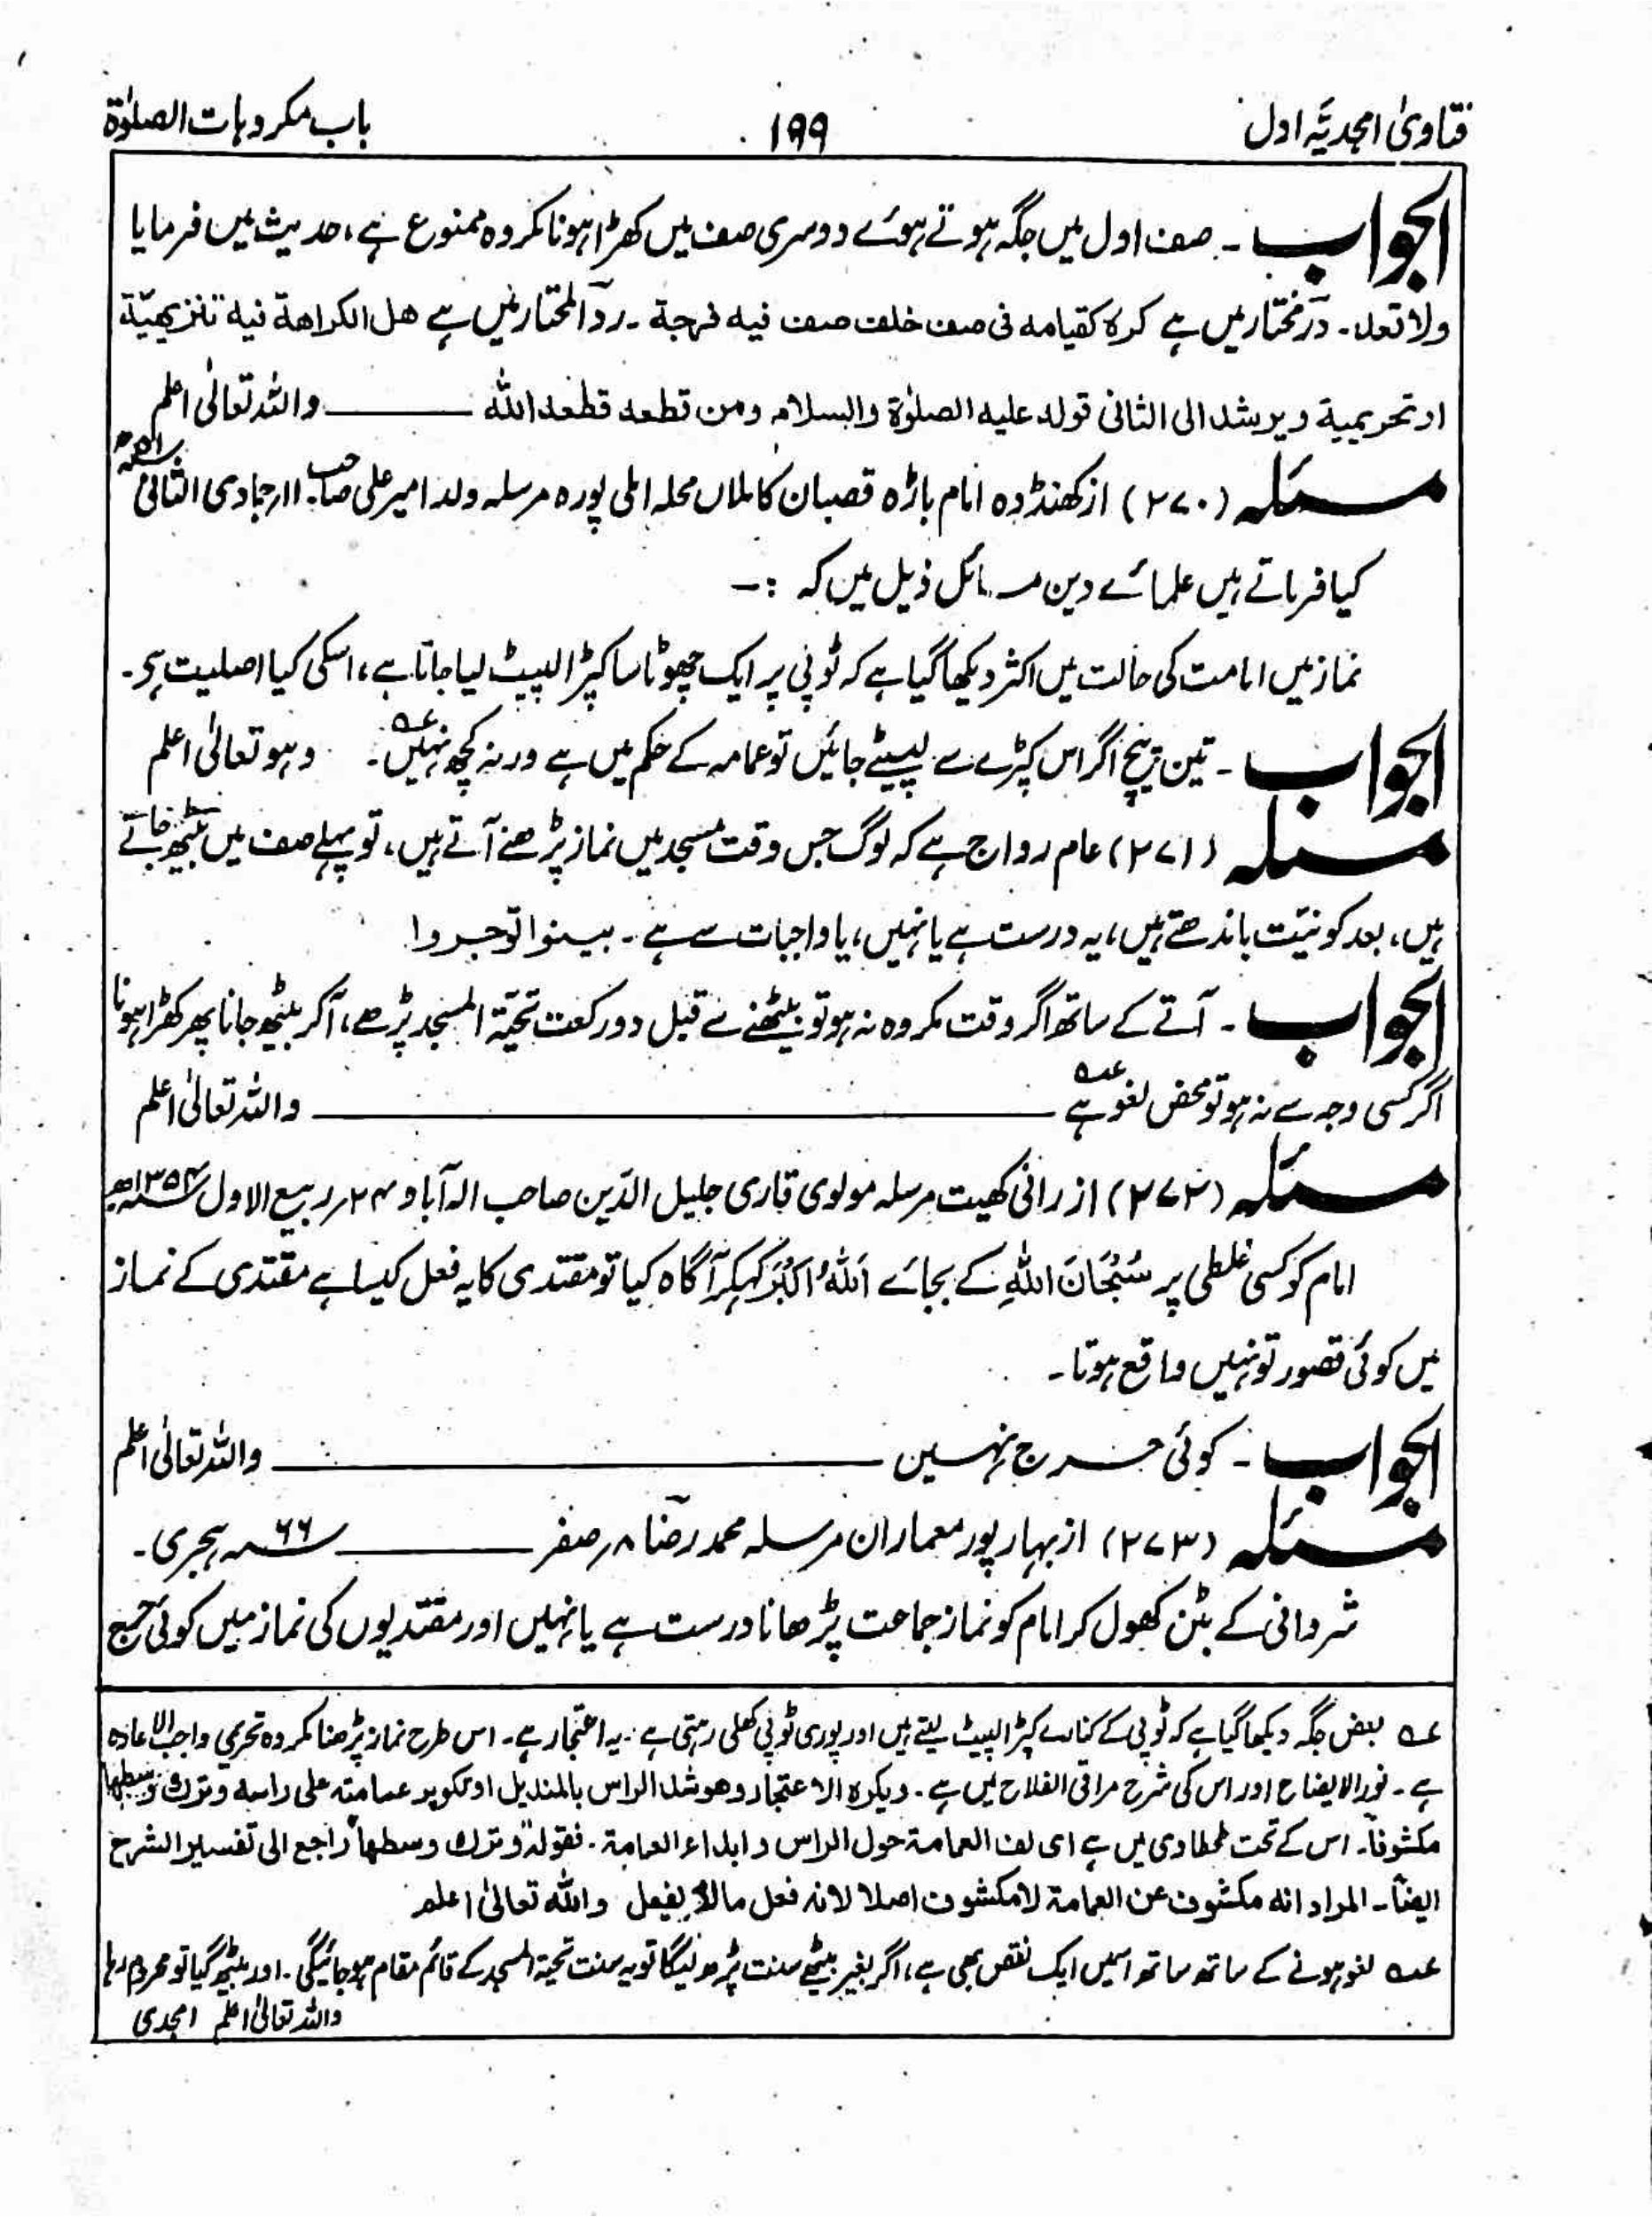 فتاویٰ امجدیَّہ اول
۱۹۹
باب مکروہات الصلوٰۃ
الجواب۔ صف اول میں جگہ ہوتے ہوئے دوسری صف میں کھڑا ہونا مکروہ ممنوع ہے، حدیث میں فرمایا
ولا تعد۔ درّمختار میں ہے کرہ کقیامہ فی صف خلف صف فیہ فرجۃ۔ ردّالمحتار میں ہے ھل الکراھۃ فیہ تنزیھیّۃ
او تحریمیۃ ویرشد الی الثانی قولہ علیہ الصلوٰۃ والسلام ومن قطعہ قطعہ اللہ ـــــ واللہ تعالیٰ اعلم
مسئلہ (۲۷۰) از کھنڈوہ امام باڑہ قصبان کاملاں محلہ املی پورہ مرسلہ ولد امیر علی صاحب ۱۱؍جمادی الثانی
کیا فرماتے ہیں علمائے دین مسائل ذیل میں کہ :۔
نماز میں امامت کی حالت میں اکثر دیکھا گیا ہے کہ ٹوپی پر ایک چھوٹا سا کپڑا لپیٹ لیا جاتا ہے، اسکی کیا اصلیت ہے۔
الجواب۔ تین پیچ اگر اس کپڑے سے لپیٹے جائیں تو عمامہ کے حکم میں ہے ورنہ کچھ نہیں عہ۔ وہو تعالیٰ اعلم
مسئلہ (۲۷۱) عام رواج ہے کہ لوگ جس وقت مسجد میں نماز پڑھنے آتے ہیں، تو پہلے صف میں بیٹھ جاتے
ہیں، بعد کو نیّت باندھتے ہیں، یہ درست ہے یا نہیں، یا واجبات سے ہے۔ بینوا توجروا
الجواب۔ آتے کے ساتھ اگر وقت مکروہ نہ ہو تو بیٹھنے سے قبل دو رکعت تحیّۃ المسجد پڑھے، آکر بیٹھ جانا پھر کھڑا ہونا
اگر کسی وجہ سے نہ ہو تو محض لغو ہے عہ ـــــ واللہ تعالیٰ اعلم
مسئلہ (۲۷۲) از رانی کھیت مرسلہ مولوی قاری جلیل الدّین صاحب الہ آباد ۲۴؍ربیع الاول ۱۳۵۴ھ
امام کو کسی غلطی پر سُبْحَانَ اللہِ کے بجائے اَللہُ اَکْبَرُ کہکر آگاہ کیا تو مقتدی کا یہ فعل کیسا ہے مقتدی کے نماز
میں کوئی قصور تو نہیں واقع ہوتا۔
الجواب۔ کوئی حرج نہیں ـــــ واللہ تعالیٰ اعلم
مسئلہ (۲۷۳) از بہارپور معماران مرسلہ محمد رضا ۸؍صفر ـــــ ۶۶ھ ہجری۔
شروانی کے بٹن کھول کر امام کو نماز جماعت پڑھانا درست ہے یا نہیں اور مقتدیوں کی نماز میں کوئی حرج
عہ بعض جگہ دیکھا گیا ہے کہ ٹوپی کے کنارے کپڑا لپیٹ لیتے ہیں اور پوری ٹوپی کھلی رہتی ہے۔ یہ اعتجار ہے۔ اس طرح نماز پڑھنا مکروہ تحریمی واجب الاعادہ
ہے۔ نورالایضاح اور اس کی شرح مراقی الفلاح میں ہے۔ ویکرہ الاعتجار وھو شد الراس بالمندیل او تکویر عمامتہ علی راسہ وترک وسطہا
مکشوفاً۔ اس کے تحت طحطاوی میں ہے ای لف العمامۃ حول الراس وابداء الھامۃ۔ فقولہ "وترک وسطھا" راجع الی تفسیر الشرح
ایضاً۔ المراد انہ مکشوف عن العمامۃ لا مکشوف اصلا لانہ فعل مالا یفعل واللہ تعالیٰ اعلم
عہ لغو ہونے کے ساتھ ساتھ اسمیں ایک نقص بھی ہے، اگر بغیر بیٹھے سنت پڑھ لیگا تو یہ سنت تحیۃ المسجد کے قائم مقام ہو جائیگی۔ اور بیٹھ گیا تو محروم رہا
واللہ تعالیٰ اعلم امجدی